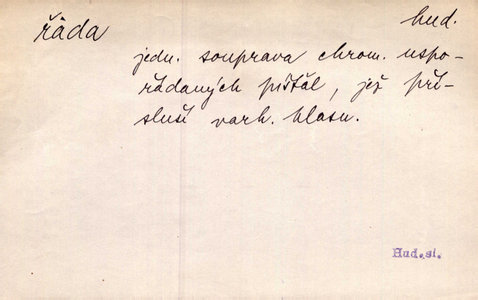 řáda hud.
jedn. souprava chrom. uspo-
řádaných píšťal, jež pří-
sluší varh. hlasu.
Hud.sl.